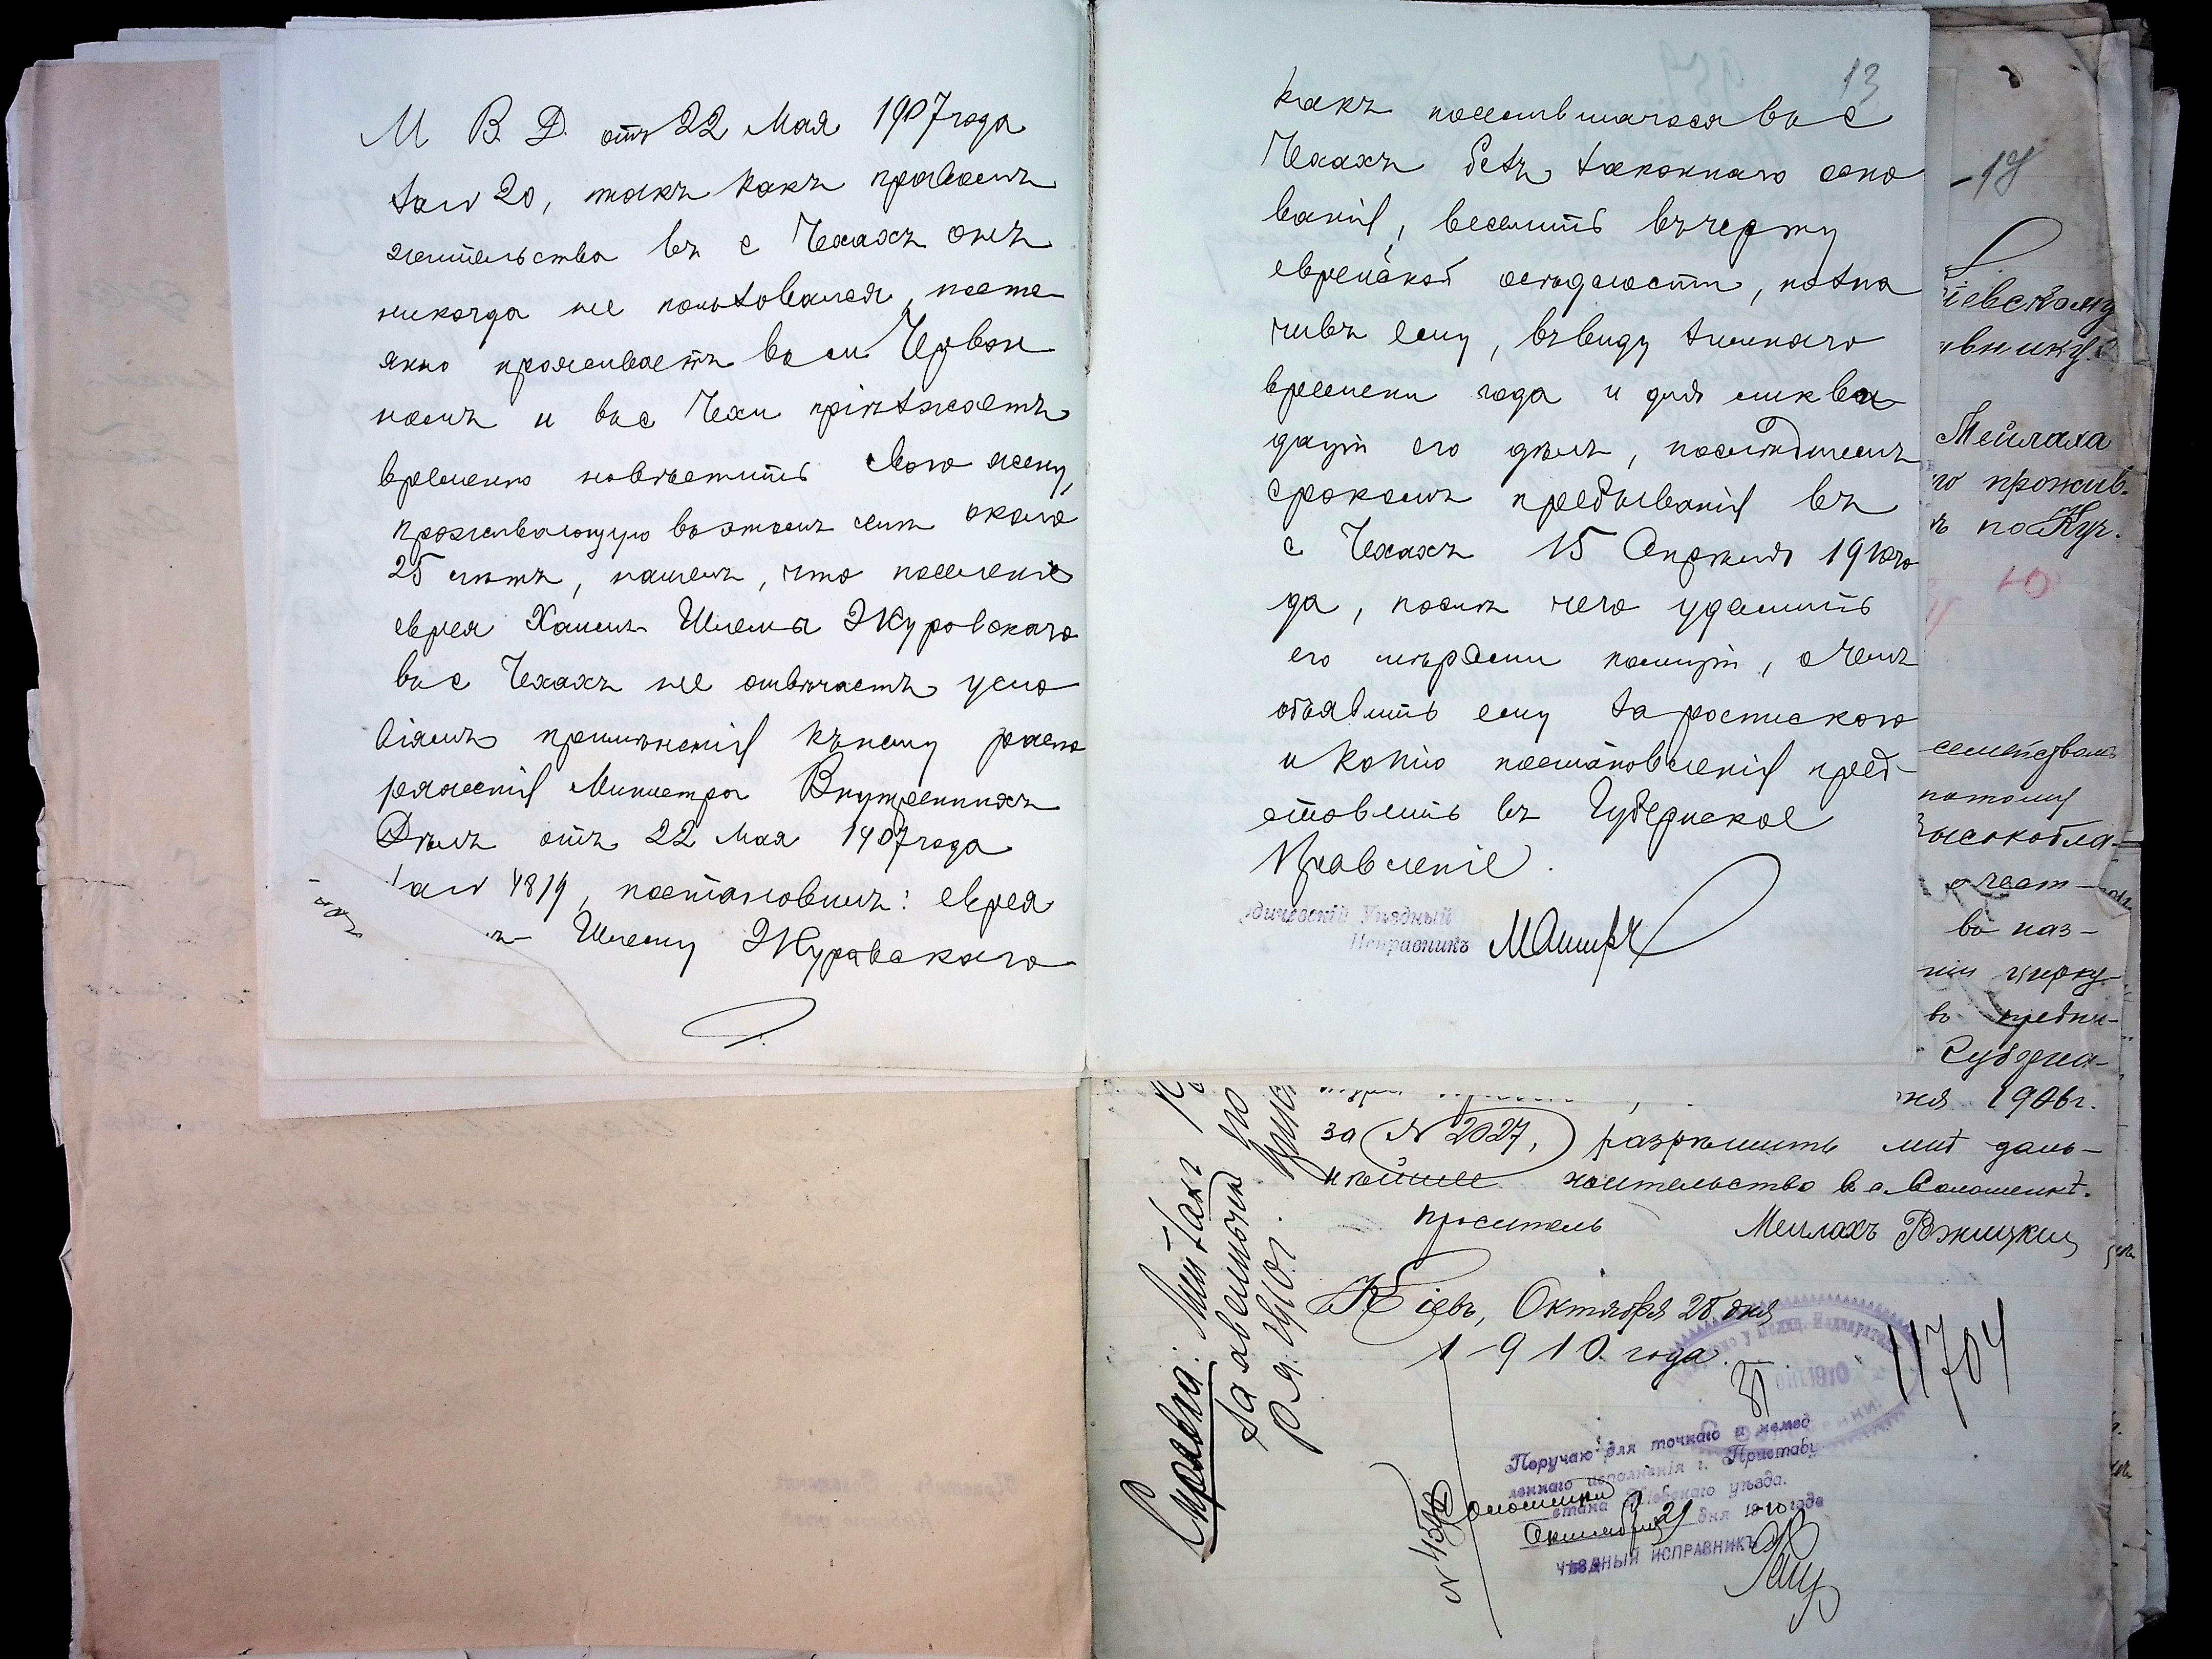 М В. Д. отъ 22 Мая 1907 года
за № 20, такъ какъ правомъ
жительства въ с Чехахъ онъ
никогда не пользовался, посто
янно проживаетъ въ м. Червон
номъ и въ с Чехи пріѣзжаетъ
временно навѣстить свою жену,
проживающую въ этомъ селѣ около
25 лѣтъ, нашелъ, что поселеніе
еврея Хаимъ-Шлемы Журовскаго
въ с Чехахъ не отвѣчаетъ усло
віямъ примѣненія къ нему распо
ряженія Министра Внутреннихъ
Дѣлъ отъ 22 мая 1907 года
за № 4819, постановилъ: еврея
ъ-Шлему Журовскаго
13
какъ поселившагося въ с
Чехахъ безъ законнаго осно
ванія, веселить въ черту
еврейской осѣдлости, назна
чивъ ему, въ виду зимняго
времени года и для ликви-
даціи его дѣлъ, послѣднимъ
срокомъ пребыванія въ
с Чехахъ 15 Апрѣля 1910 го
да, послѣ чего удалить
его мѣрами полиціи, о чемъ
объявить ему за роспискою
и копію постановленія пред-
ставить въ Губернское
Правленіе.
Уѣздный
Исправникъ
-18
іевскому
внику
Мейлаха
го прожив.
ъ по Куч.
семействомъ
потому
Высокобла-
о чест-
во наз-
ніи цирку-
во предпи-
Губерна-
ня 1906 г.
за № 2027, разрѣшить мнѣ даль-
нѣйшее жительство въ с. Соломенкѣ.
проситель Мейлахъ Ржицкій
Кіевъ, Октября 28 дня
1910 года.
11704
31
ОКТ 1910
Поручаю для точнаго и немед
леннаго исполненія г. Приставу
Соломенки
стана Кіевскаго уѣзда.
Октября 31 дня 1910 года
УѢЗДНЫЙ ИСПРАВНИКЪ
Справка: